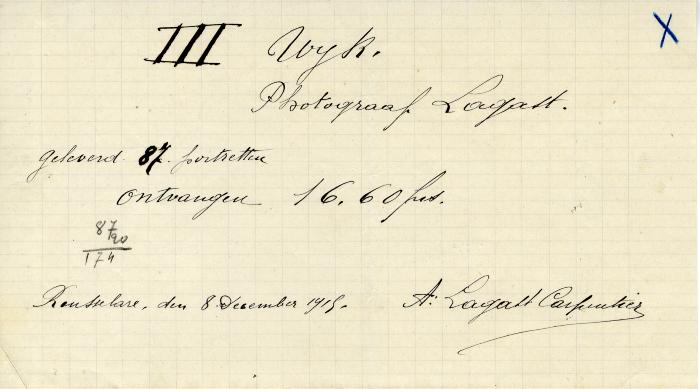 III Wyk.
Photograaf Lagatt.
geleverd 87 portretten
ontvangen 16.60 frs.
87
20
174
Rousselare, den 8 December 1915.
A. Lagatt Carpentier
X